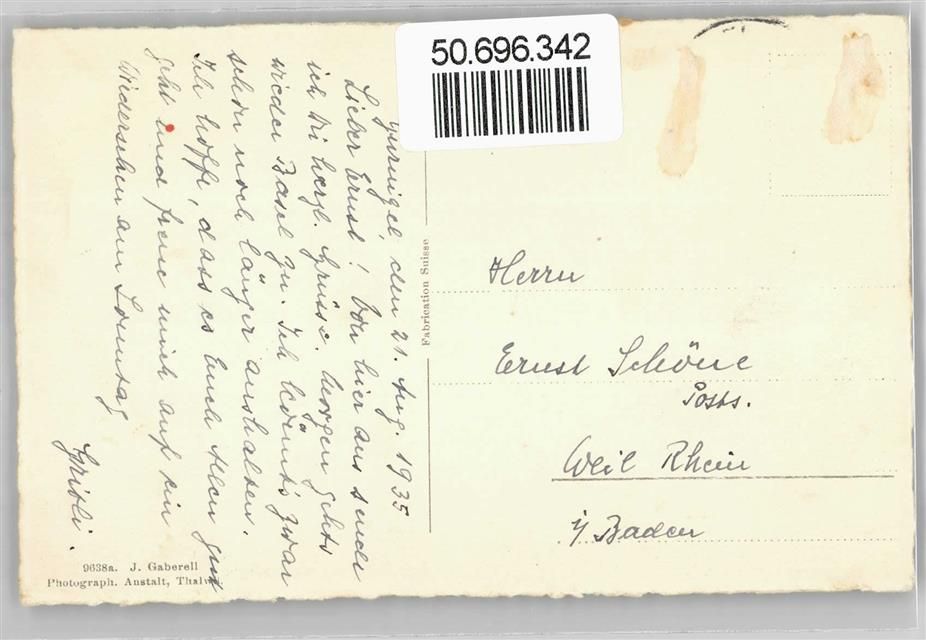 50.696.342
Gurnigel, den 21. Aug. 1935
Lieber Ernst! Von hier aus sende
ich Dir herzl. Grüsse. Morgen gehts
wieder Basel zu. Ich könnt's zwar
schon noch länger aushalten.
Ich hoffe, dass es Euch Allen gut
geht und freue mich auf ein
Wiedersehen am Sonntag
Gritli.
Fabrication Suisse
Herrn
Ernst Schöne
Posts.
Weil Rhein
i/ Baden
9638a. J. Gaberell
Photograph. Anstalt, Thalwil